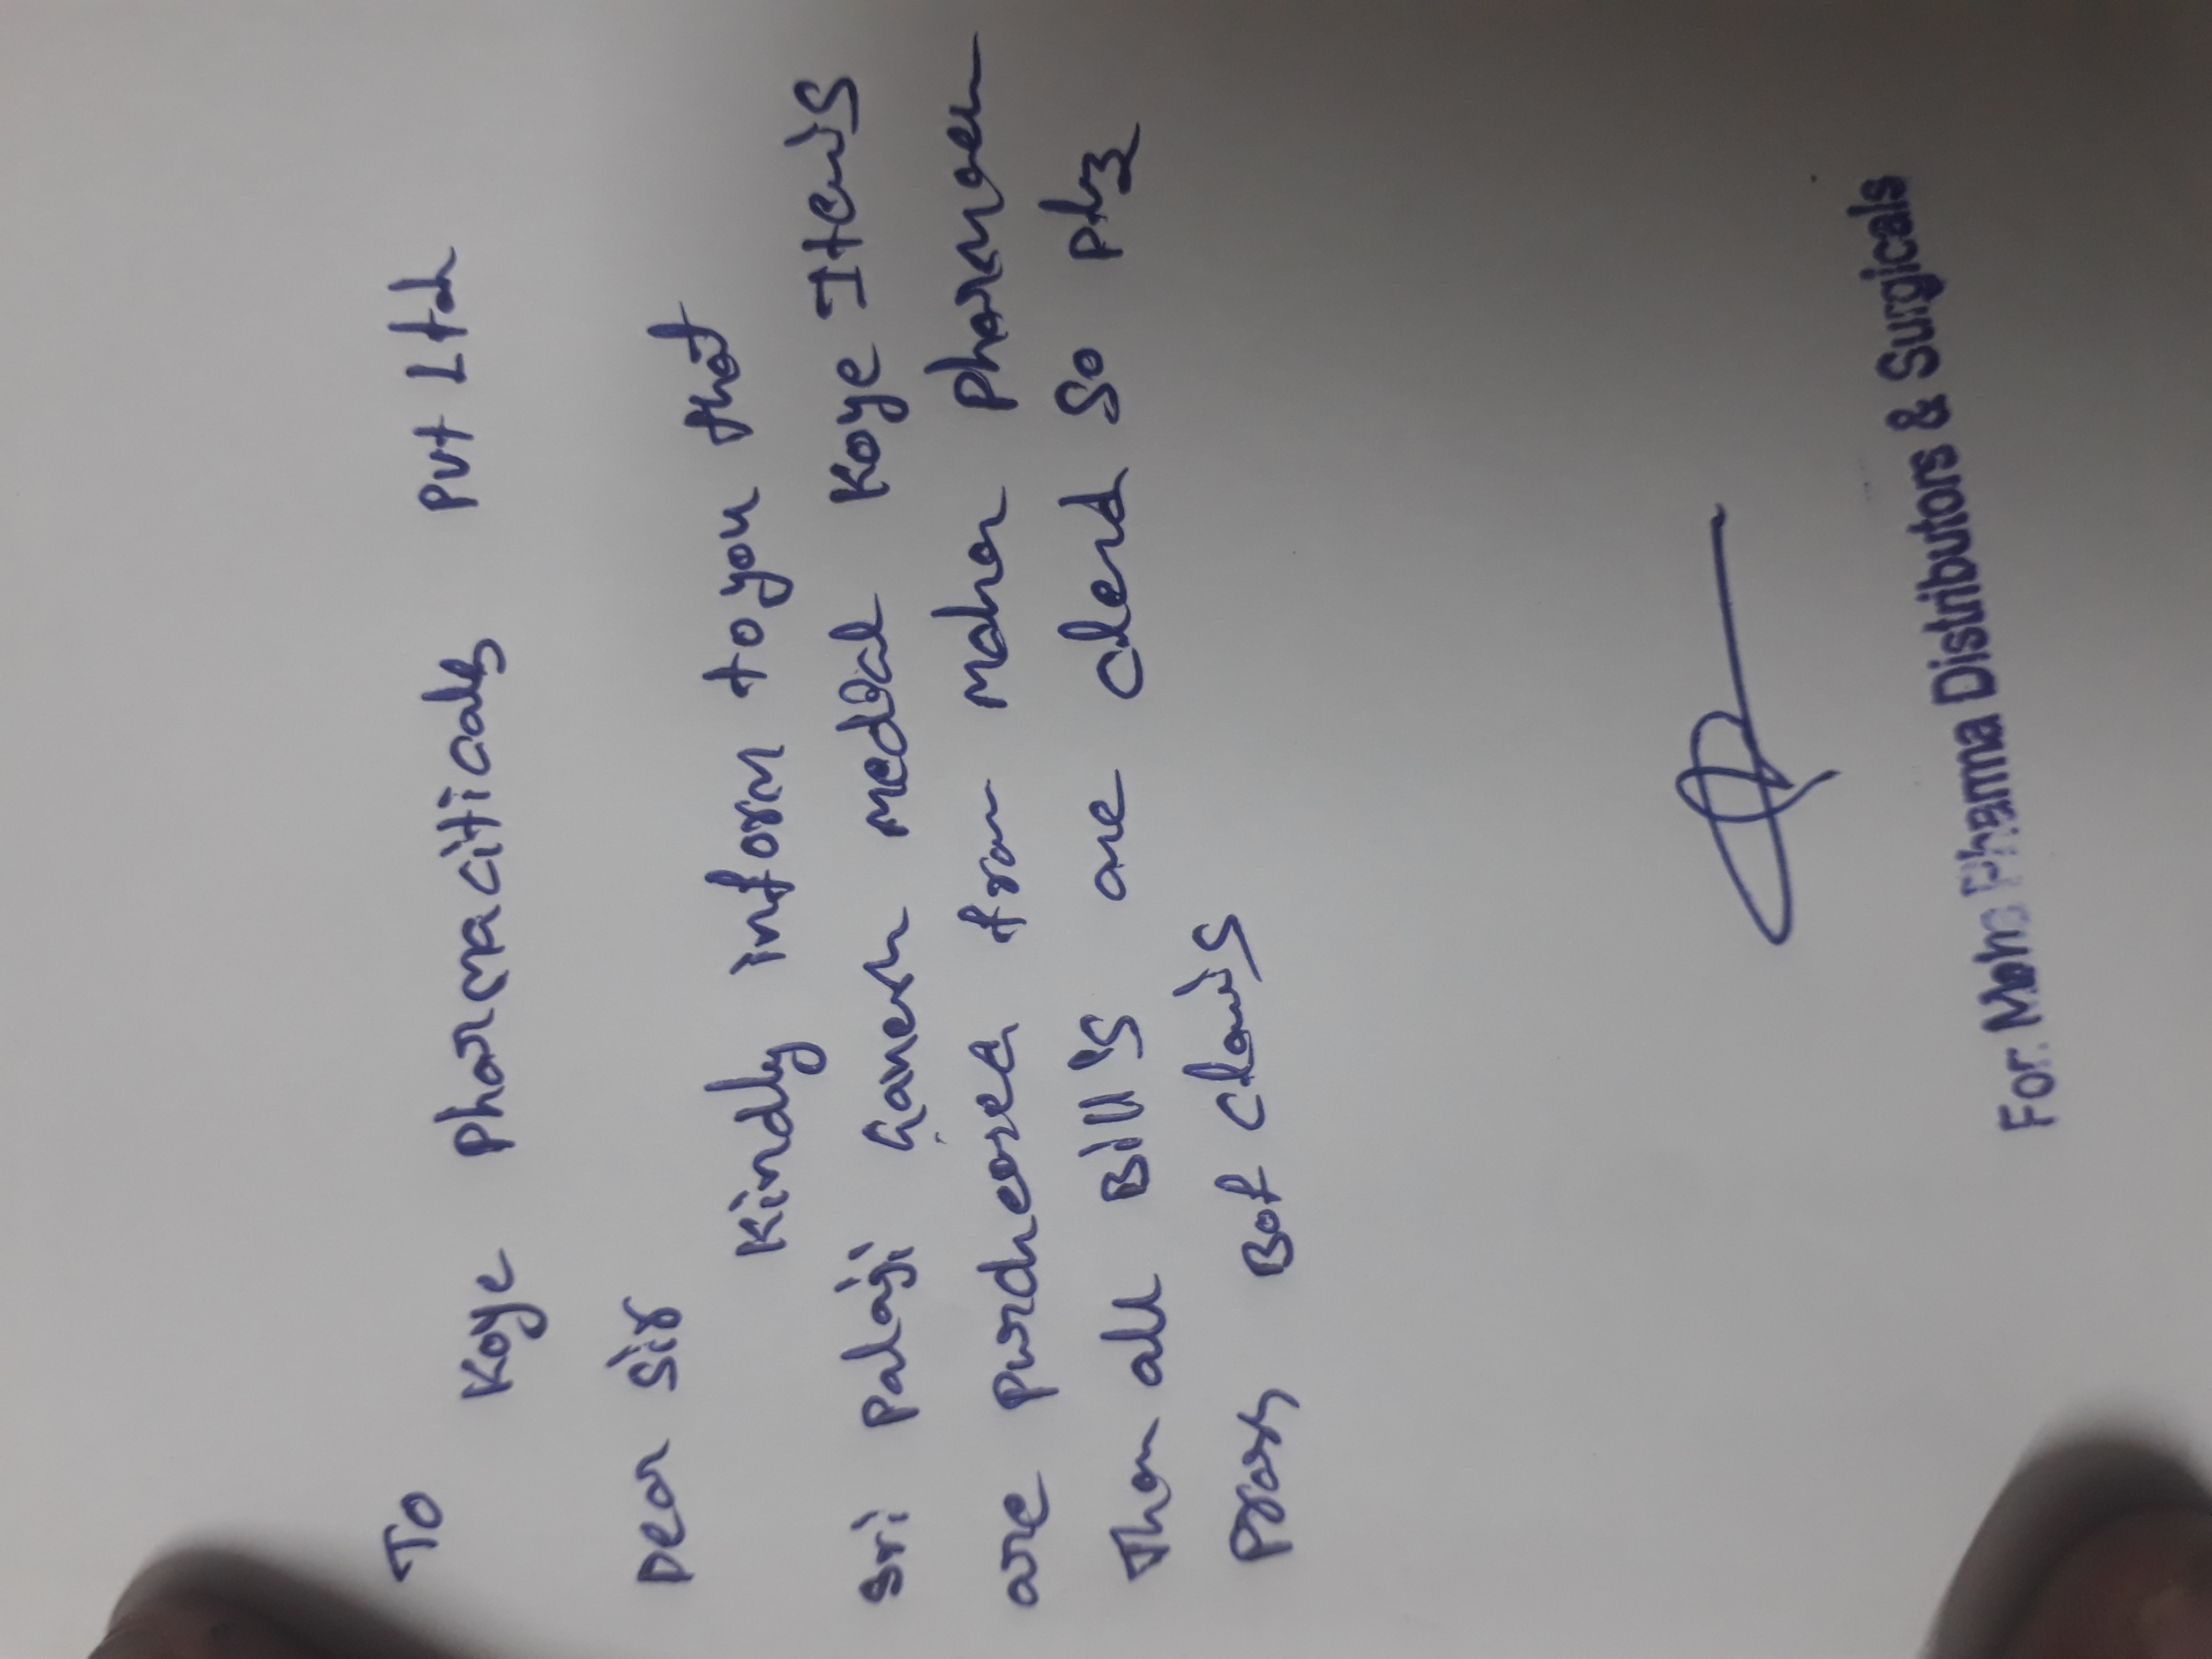 To
Koye Pharmaciticals Pvt Ltd
Dear Sir
Kindly inform to you that
Sri Palaji Ganesh medical Koye Items
are from Maha Pharma
Than all Bill's are Clerd So Plz
Claim's
For: Maha Pharma Distributors & Surgicals